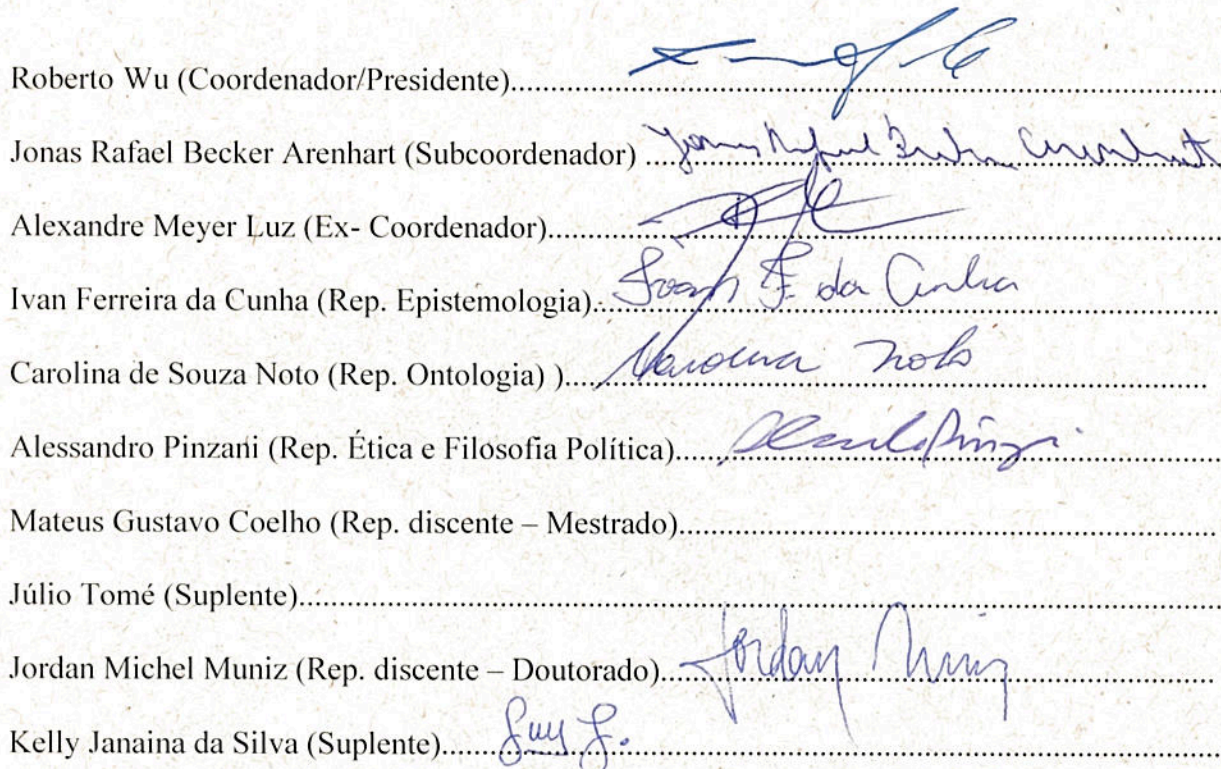 Roberto Wu (Coordenador/Presidente)..........
Jonas Rafael Becker Arenhart (Subcoordenador) .......... Jonas Rafael Becker Arenhart
Alexandre Meyer Luz (Ex- Coordenador)..........
Ivan Ferreira da Cunha (Rep. Epistemologia)........... Ivan F. da Cunha
Carolina de Souza Noto (Rep. Ontologia) ).......... Carolina Noto
Alessandro Pinzani (Rep. Ética e Filosofia Política)..........
Mateus Gustavo Coelho (Rep. discente – Mestrado)..........
Júlio Tomé (Suplente)..........
Jordan Michel Muniz (Rep. discente – Doutorado).......... Jordan Muniz
Kelly Janaina da Silva (Suplente)..........